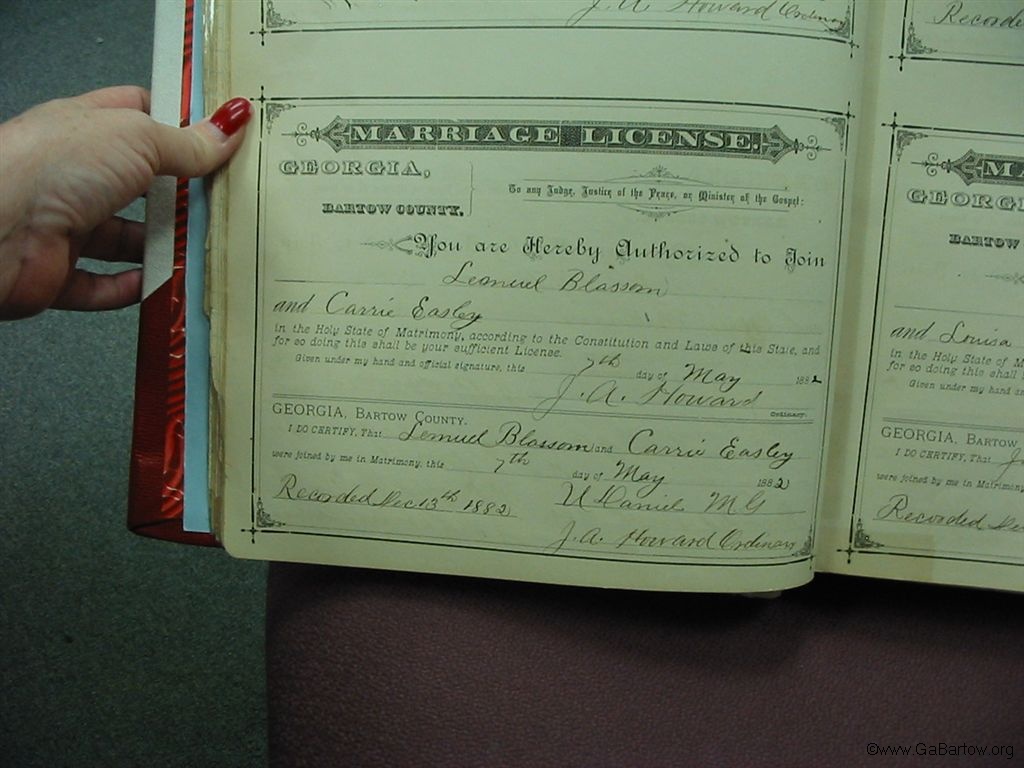 J. A. Howard Ordinary
MARRIAGE LICENSE.
GEORGIA,
BARTOW COUNTY.
To any Judge, Justice of the Peace, or Minister of the Gospel:
You are Hereby Authorized to Join
Lemuel Blossom
and Carrie Easley
in the Holy State of Matrimony, according to the Constitution and Laws of this State, and
for so doing this shall be your sufficient License.
Given under my hand and official signature, this 7th day of May 1882
J. A. Howard
Ordinary.
GEORGIA, BARTOW COUNTY.
I DO CERTIFY, That Lemuel Blossom and Carrie Easley
were joined by me in Matrimony, this 7th day of May 1882
Recorded Dec 13th 1882 Daniel M G
J. A. Howard Ordinary
Recorde
MA
GEORGI
BARTOW
and Louisa
in the Holy State of M
for so doing this shall
Given under my hand an
GEORGIA, BARTOW
I DO CERTIFY, That J
were joined by me in Matrimony
Recorded De
©www.GaBartow.org